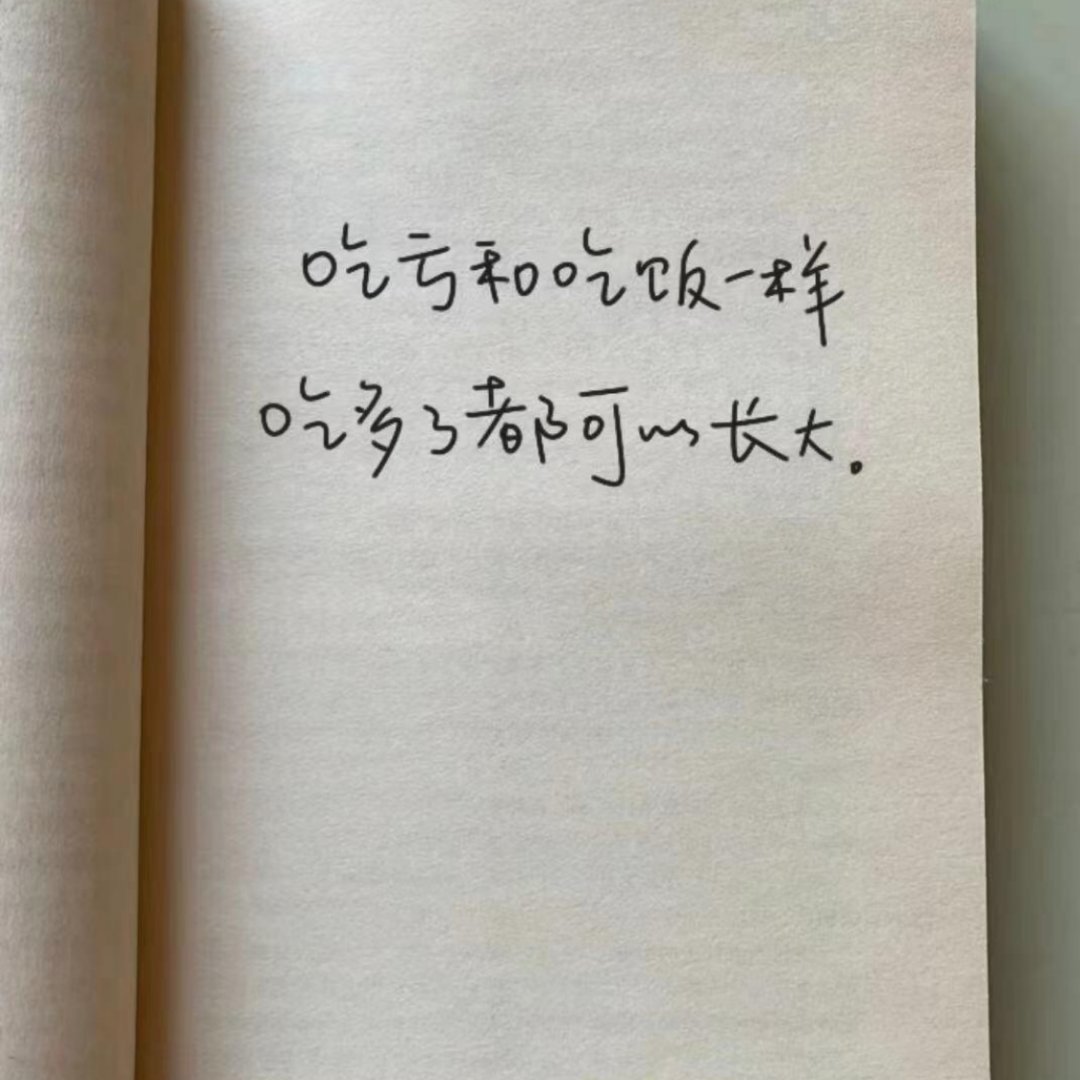 吃亏和吃饭一样
吃多了都可以长大。